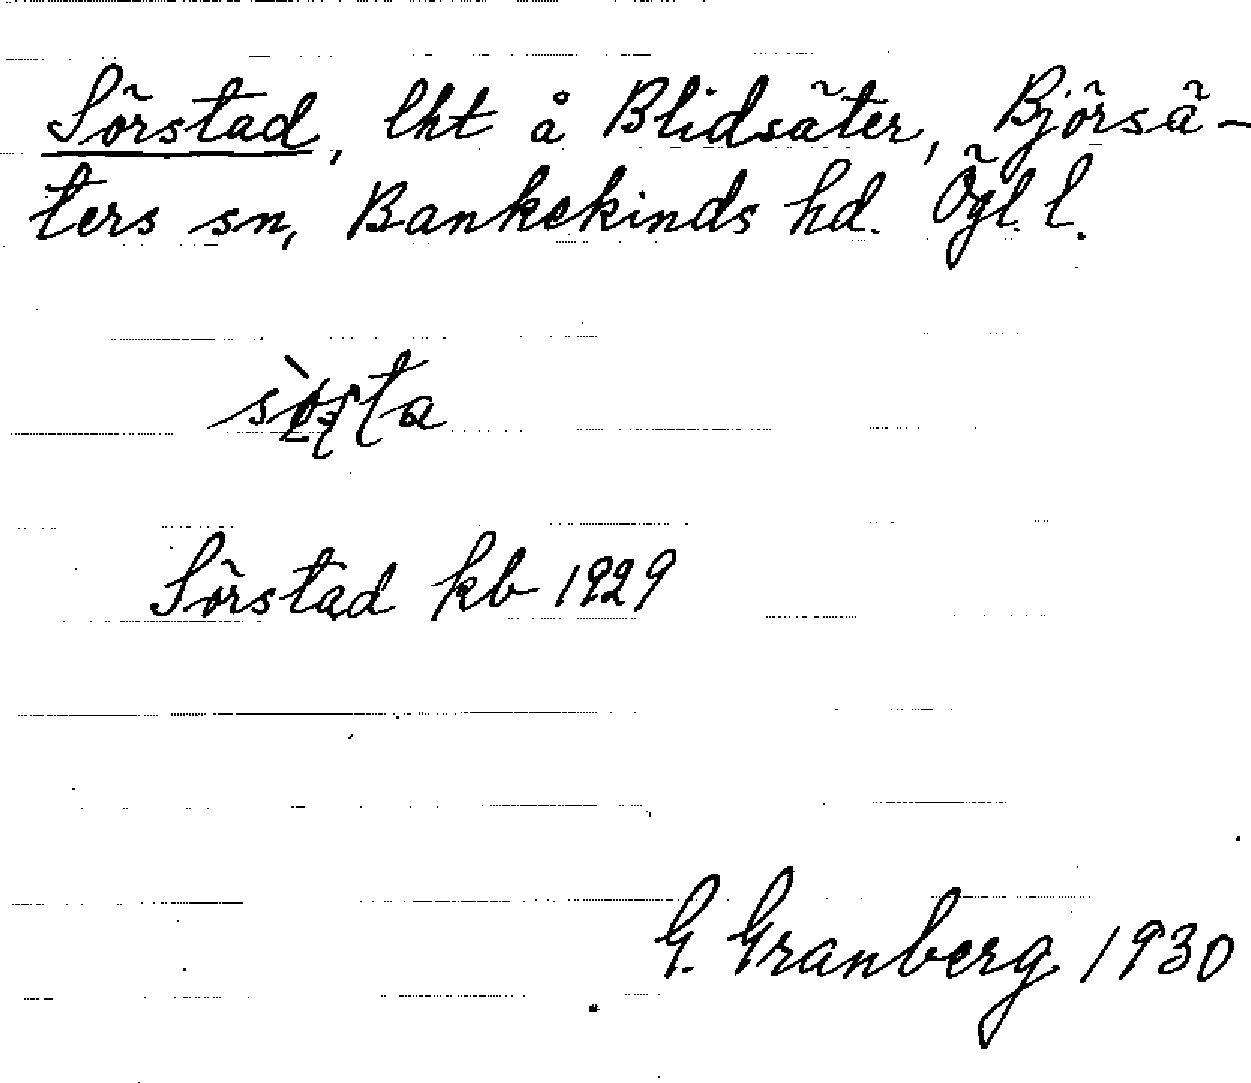 Sörstad, lht å Blidsäter, Björsä-
ters sn, Bankekinds hd. Ögl. l.
Sörstad kb 1929
G. Granberg 1930